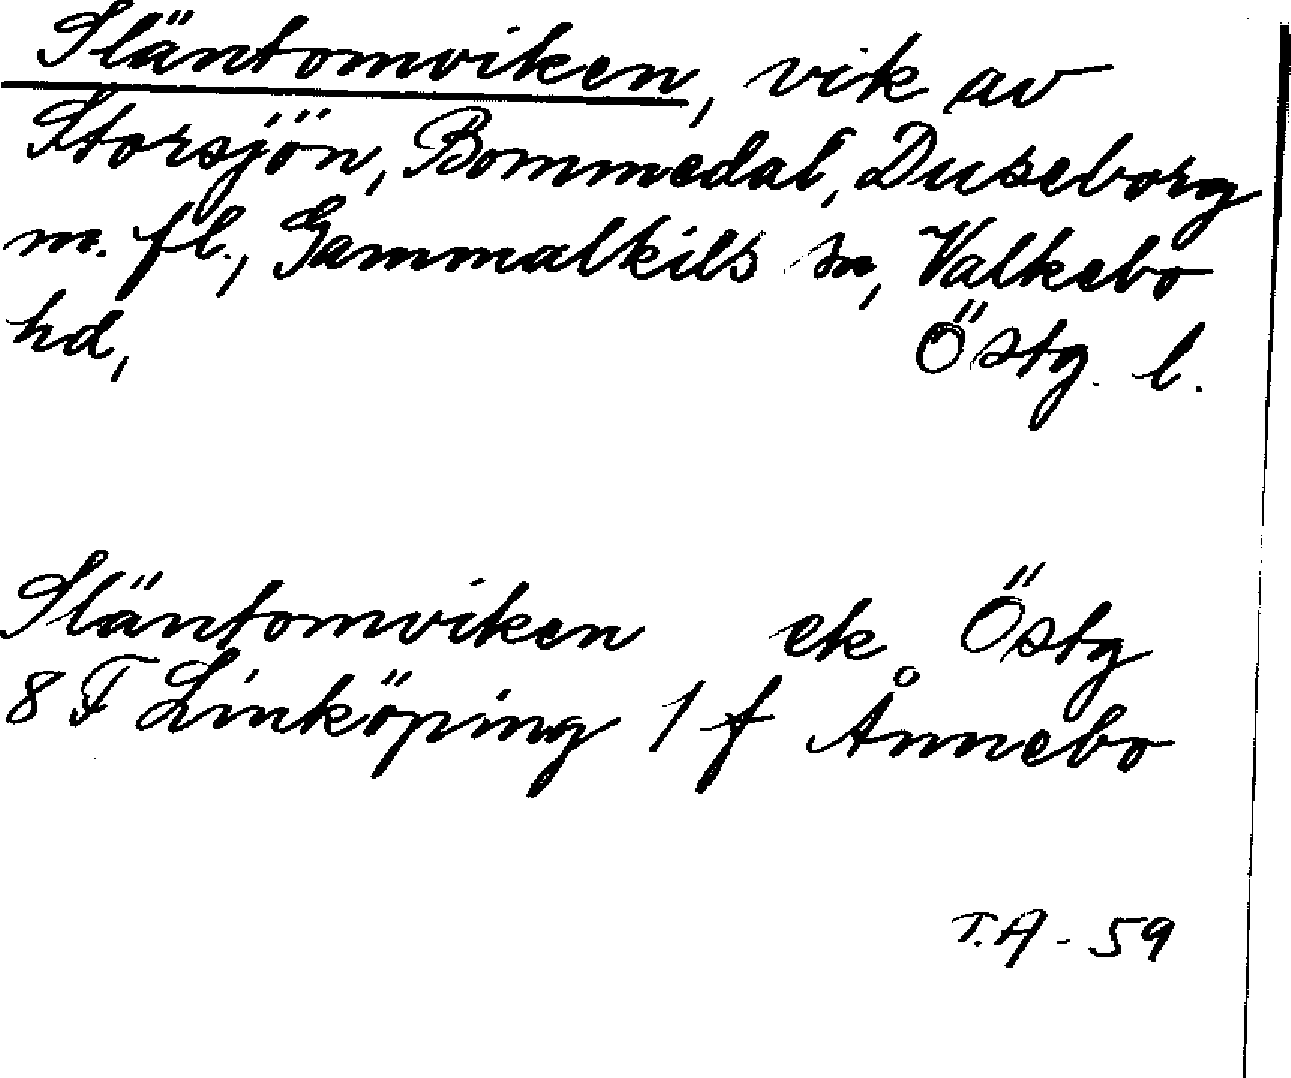 Släntomviken, vik av
Storsjön, Bommedal, Duseborg
m. fl., Gammalkils sn, Valkebo
hd, Östg. l.
Släntomviken ek. Östg
8 F Linköping 1 f Ånnebo
T.A - 59